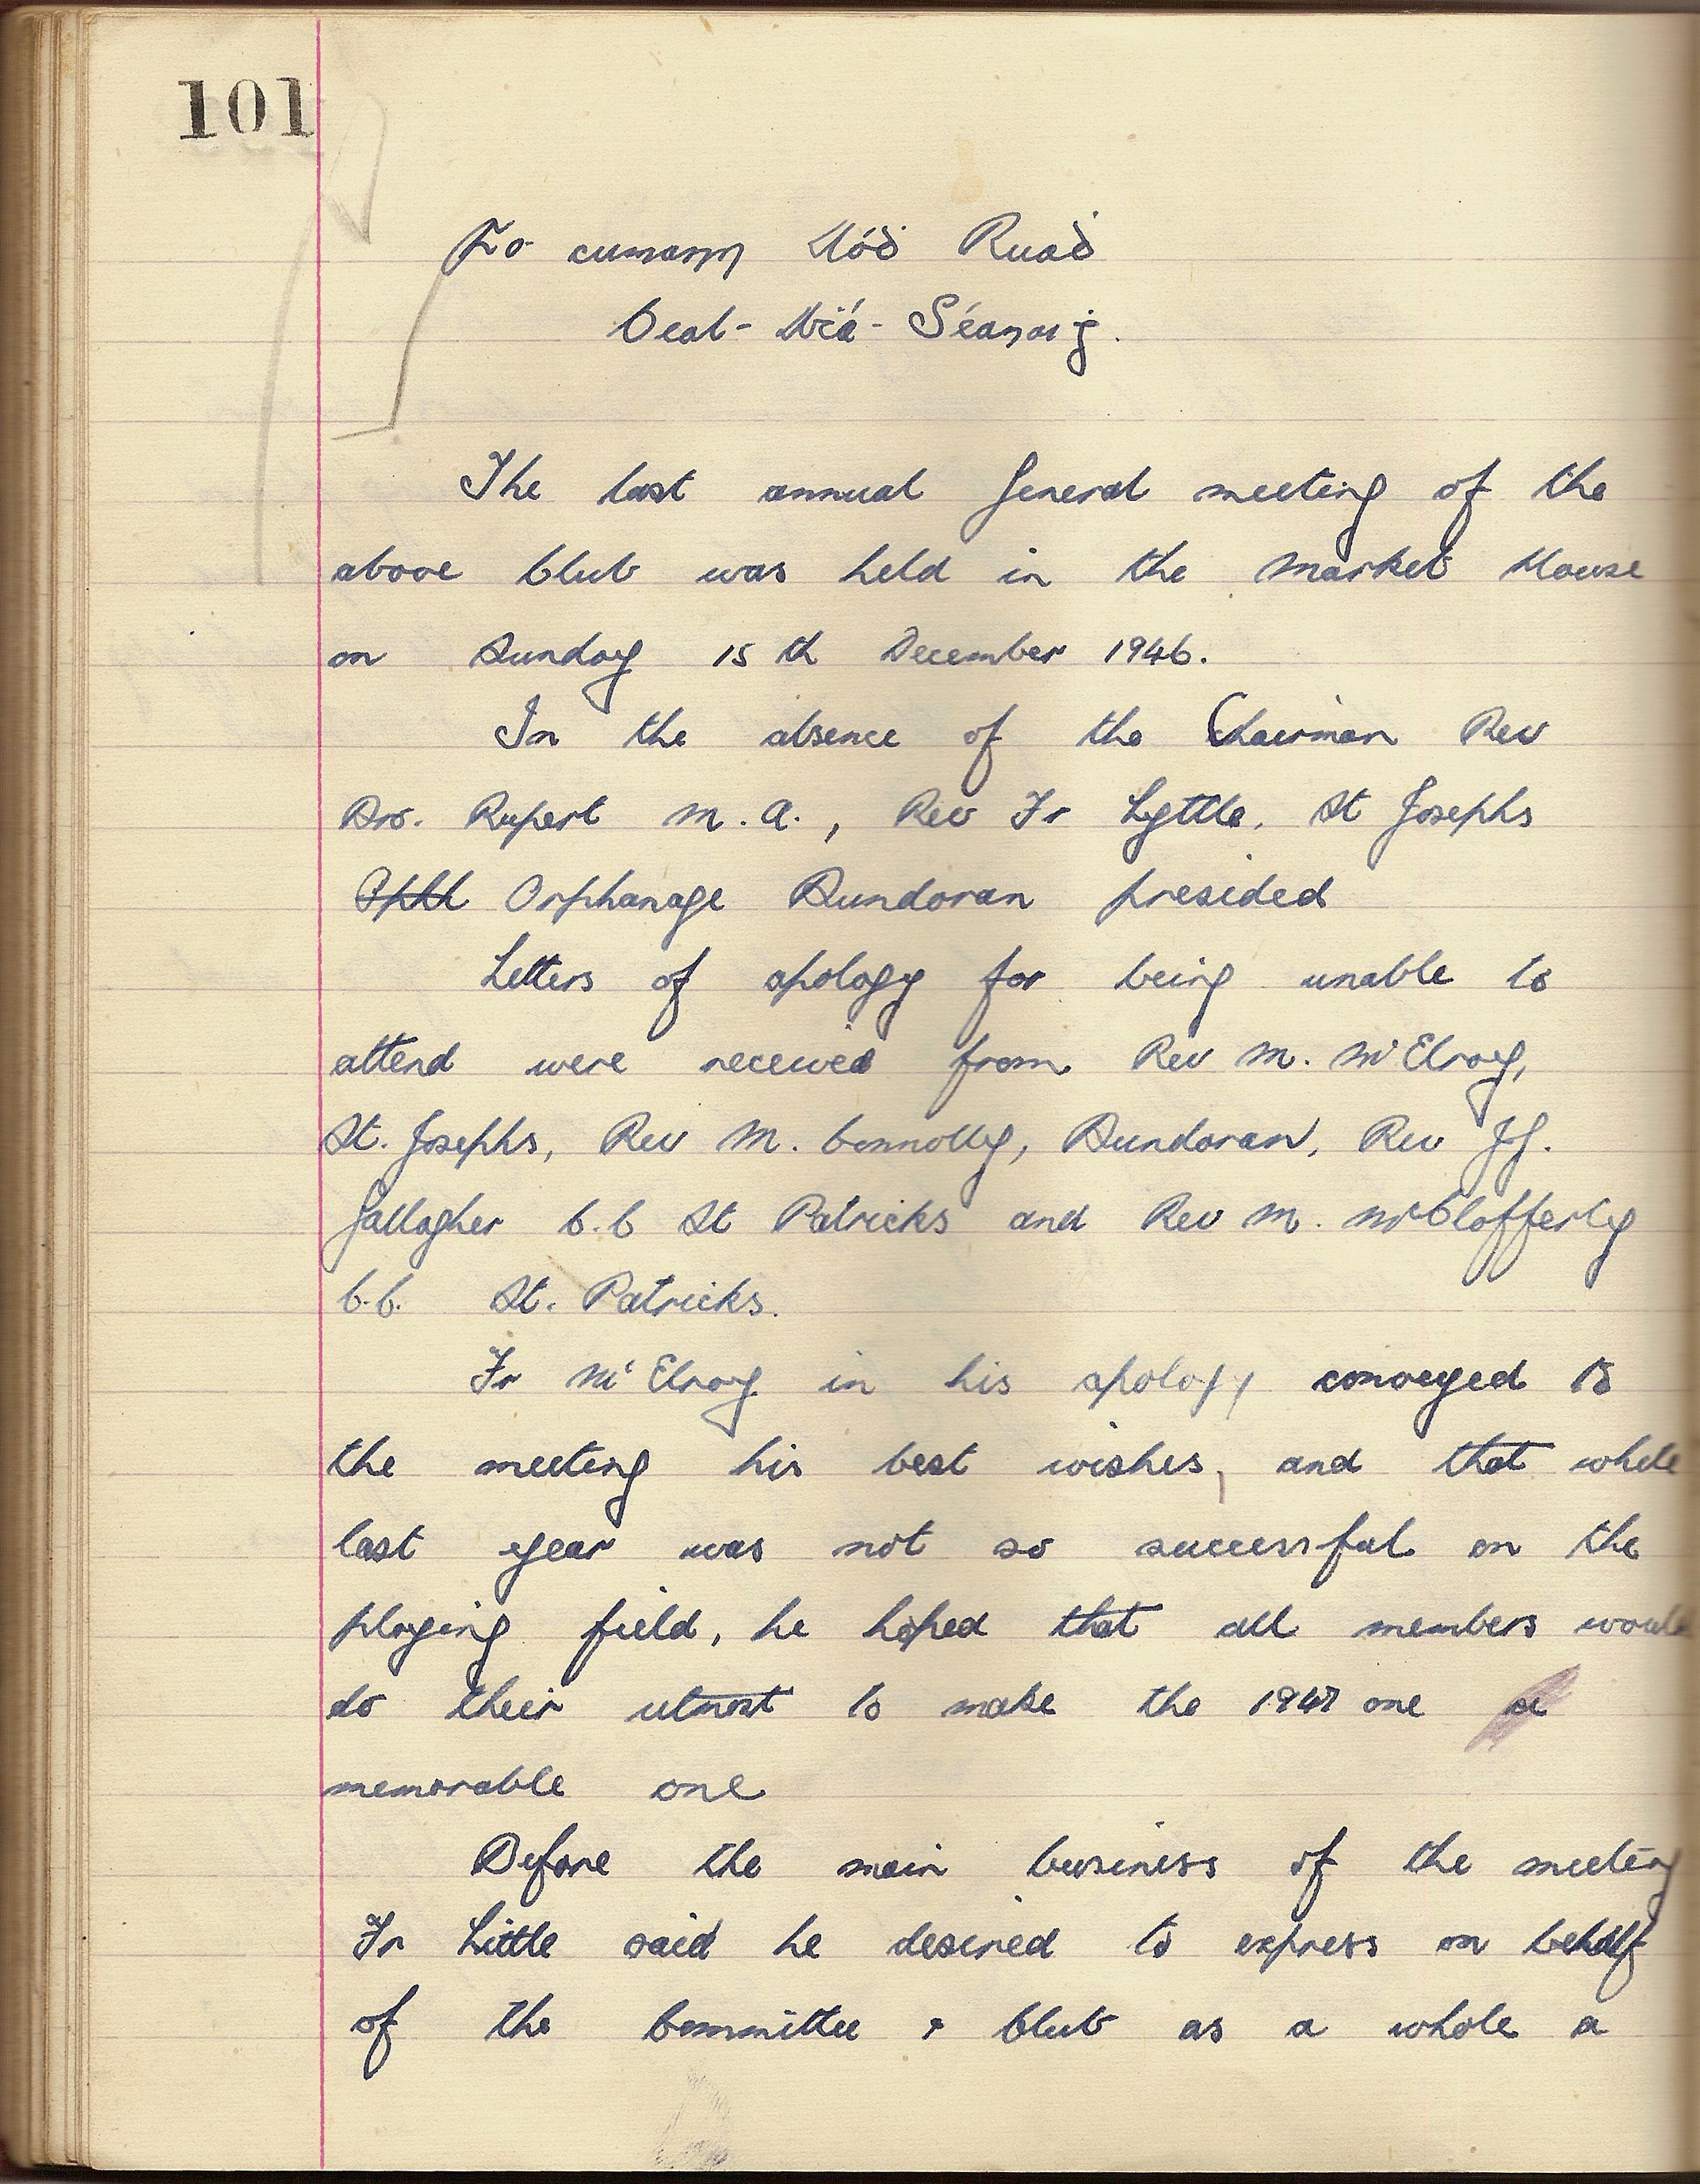 101
Fo cumann Aóḋ Ruaḋ
Beal-Áṫa-Séanaiġ.
The last annual general meeting of the
above Club was held in the Market House
on Sunday 15th December 1946.
In the absence of the Chairman Rev
Bro. Rupert M.A., Rev Fr Lyttle, St Josephs
Orphanage Dundoran presided
Letters of apology for being unable to
attend were received from Rev M. McElroy,
St. Josephs, Rev M. Connolly, Bundoran, Rev J.J.
Gallagher C.C St Patricks and Rev M. McClofferty
C.C. St. Patricks.
Fr McElroy in his apology conveyed to
the meeting his best wishes, and that while
last year was not so successful on the
playing field, he hoped that all members would
do their utmost to make the 1947 one a
memorable one
Before the main business of the meeting
Fr Little said he desired to express on behalf
of the Committee & Club as a whole a